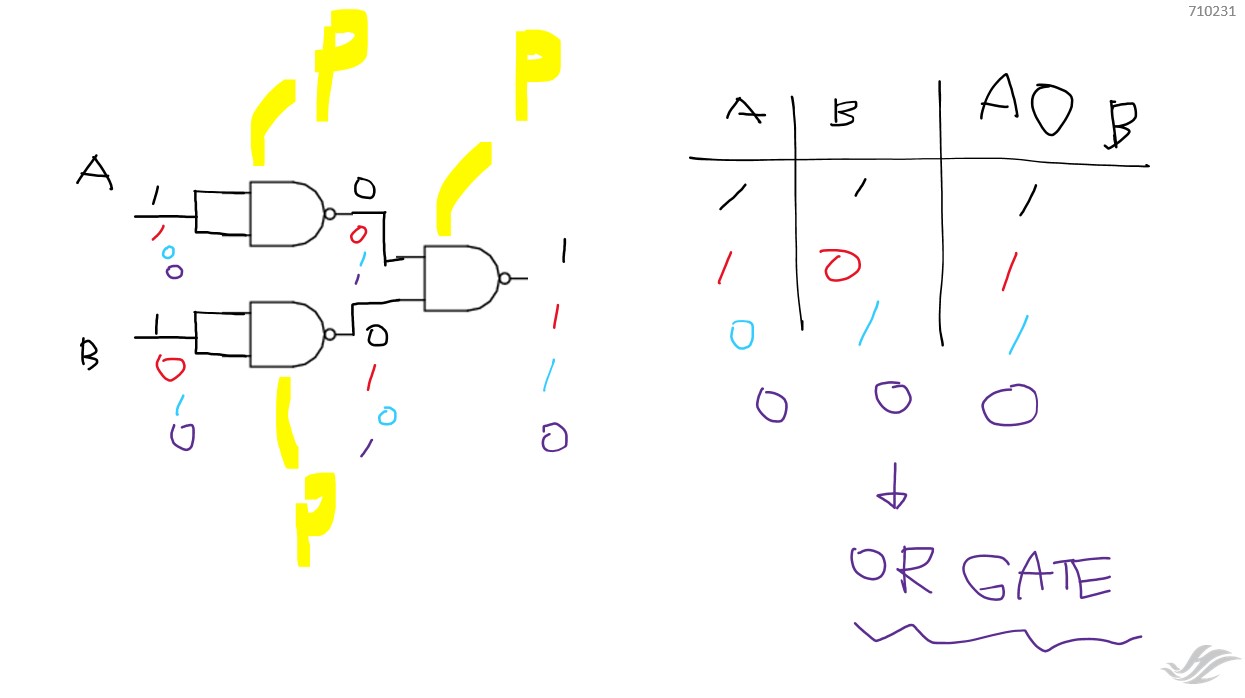 710231
P P
A
1 0
1 0 1
0 1
0 1
B
1 0
0 1 1
1 0 1
0 1 0
P
A B A O B
1 1 1
1 0 1
0 1 1
0 0 0
↓
OR GATE